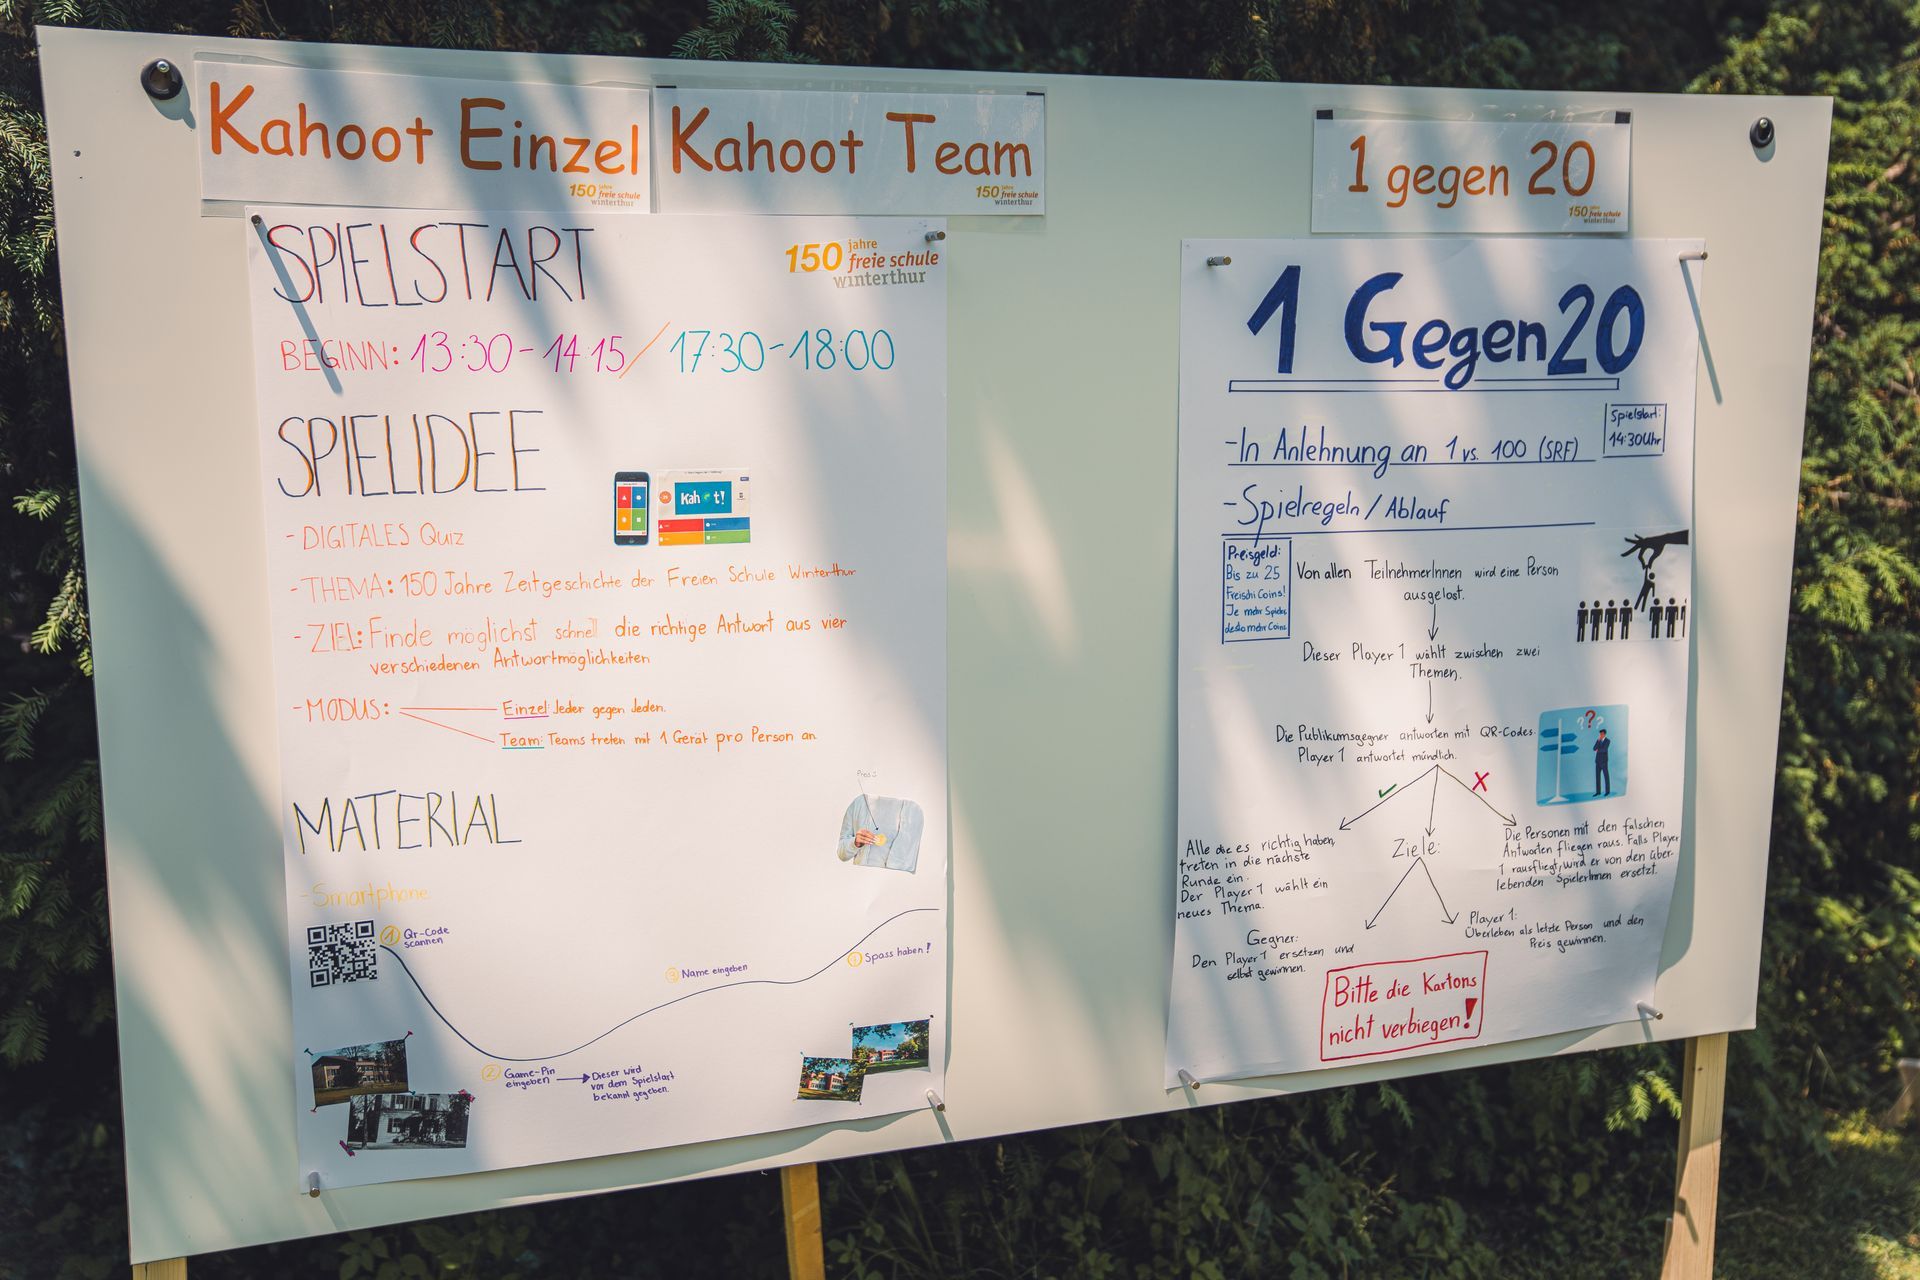 Kahoot Einzel
150 jahre
freie schule
winterthur
Kahoot Team
150 jahre
freie schule
winterthur
1 gegen 20
150 jahre
freie schule
winterthur
SPIELSTART
150 jahre
freie schule
winterthur
BEGINN: 13:30-14:15 / 17:30-18:00
SPIELIDEE
Kahoot!
- DIGITALES Quiz
- THEMA: 150 Jahre Zeitgeschichte der Freien Schule Winterthur
- ZIEL: Finde möglichst schnell die richtige Antwort aus vier
verschiedenen Antwortmöglichkeiten
- MODUS:
Einzel: Jeder gegen Jeden.
Team: Teams treten mit 1 Gerät pro Person an
MATERIAL
- Smartphone
1 Qr-Code
scannen
3 Name eingeben
Spass haben!
2 Game-Pin
eingeben
Dieser wird
vor dem Spielstart
bekannt gegeben.
1 Gegen 20
Spielstart:
14:30Uhr
-In Anlehnung an 1 vs. 100 (SRF)
-Spielregeln / Ablauf
Preisgeld:
Bis zu 25
Freischi Coins!
Je mehr Spieler
desto mehr Coins
Von allen TeilnehmerInnen wird eine Person
ausgelost.
Dieser Player 1 wählt zwischen zwei
Themen.
Die Publikumsgegner antworten mit QR-Codes.
Player 1 antwortet mündlich.
???
Alle die es richtig haben,
treten in die nächste
Runde ein.
Der Player 1 wählt ein
neues Thema.
Ziele:
Die Personen mit den falschen
Antworten fliegen raus. Falls Player
1 rausfliegt, wird er von den über-
lebenden SpielerInnen ersetzt.
Gegner:
Den Player 1 ersetzen und
selbst gewinnen.
Player 1:
Überleben als letzte Person und den
Preis gewinnen.
Bitte die Kartons
nicht verbiegen!